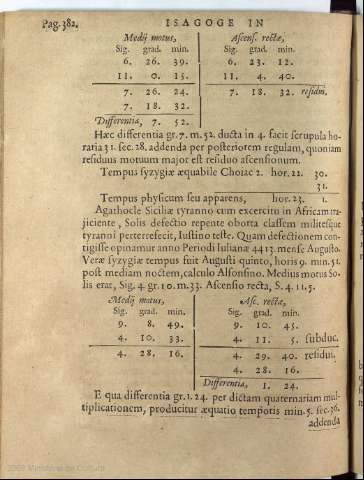 Pag. 382. ISAGOGE IN
Medij motus, Ascens. rectæ,
Sig. grad. min. Sig. grad. min.
6. 26. 39. 6. 23. 12.
11. 0. 15. 11. 4. 40.
7. 26. 24. 7. 18. 32. residui.
7. 18. 32.
Differentia, 7. 52.
Hæc differentia gr. 7. m. 52. ducta in 4. facit scrupula ho-
raria 31. sec. 28. addenda per posteriorem regulam, quoniam
residuus motuum major est residuo ascensionum.
Tempus syzygiæ æquabile Choiac 2. hor. 22. 30.
31.
Tempus physicum seu apparens, hor. 23. 1.
Agathocle Siciliæ tyranno cum exercitu in Africam tra-
jiciente, Solis defectio repente oborta classem militesque
tyranni perterrefecit, Iustino teste. Quam defectionem con-
tigisse opinamur anno Periodi Iulianæ 4413. mense Augusto.
Veræ syzygiæ tempus fuit Augusti quinto, horis 9. min. 51.
post mediam noctem, calculo Alfonsino. Medius motus So-
lis erat, Sig. 4. gr. 10. m. 33. Ascensio recta, S. 4. 11. 5.
Medij motus, Asc. rectæ,
Sig. grad. min. Sig. grad. min.
9. 8. 49. 9. 10. 45.
4. 10. 33. 4. 11. 5. subduc.
4. 28. 16. 4. 29. 40. residui.
4. 28. 16.
Differentia, 1. 24.
E qua differentia gr. 1. 24. per dictam quaternariam mul-
tiplicationem, producitur æquatio temporis min. 5. sec. 36.
addenda